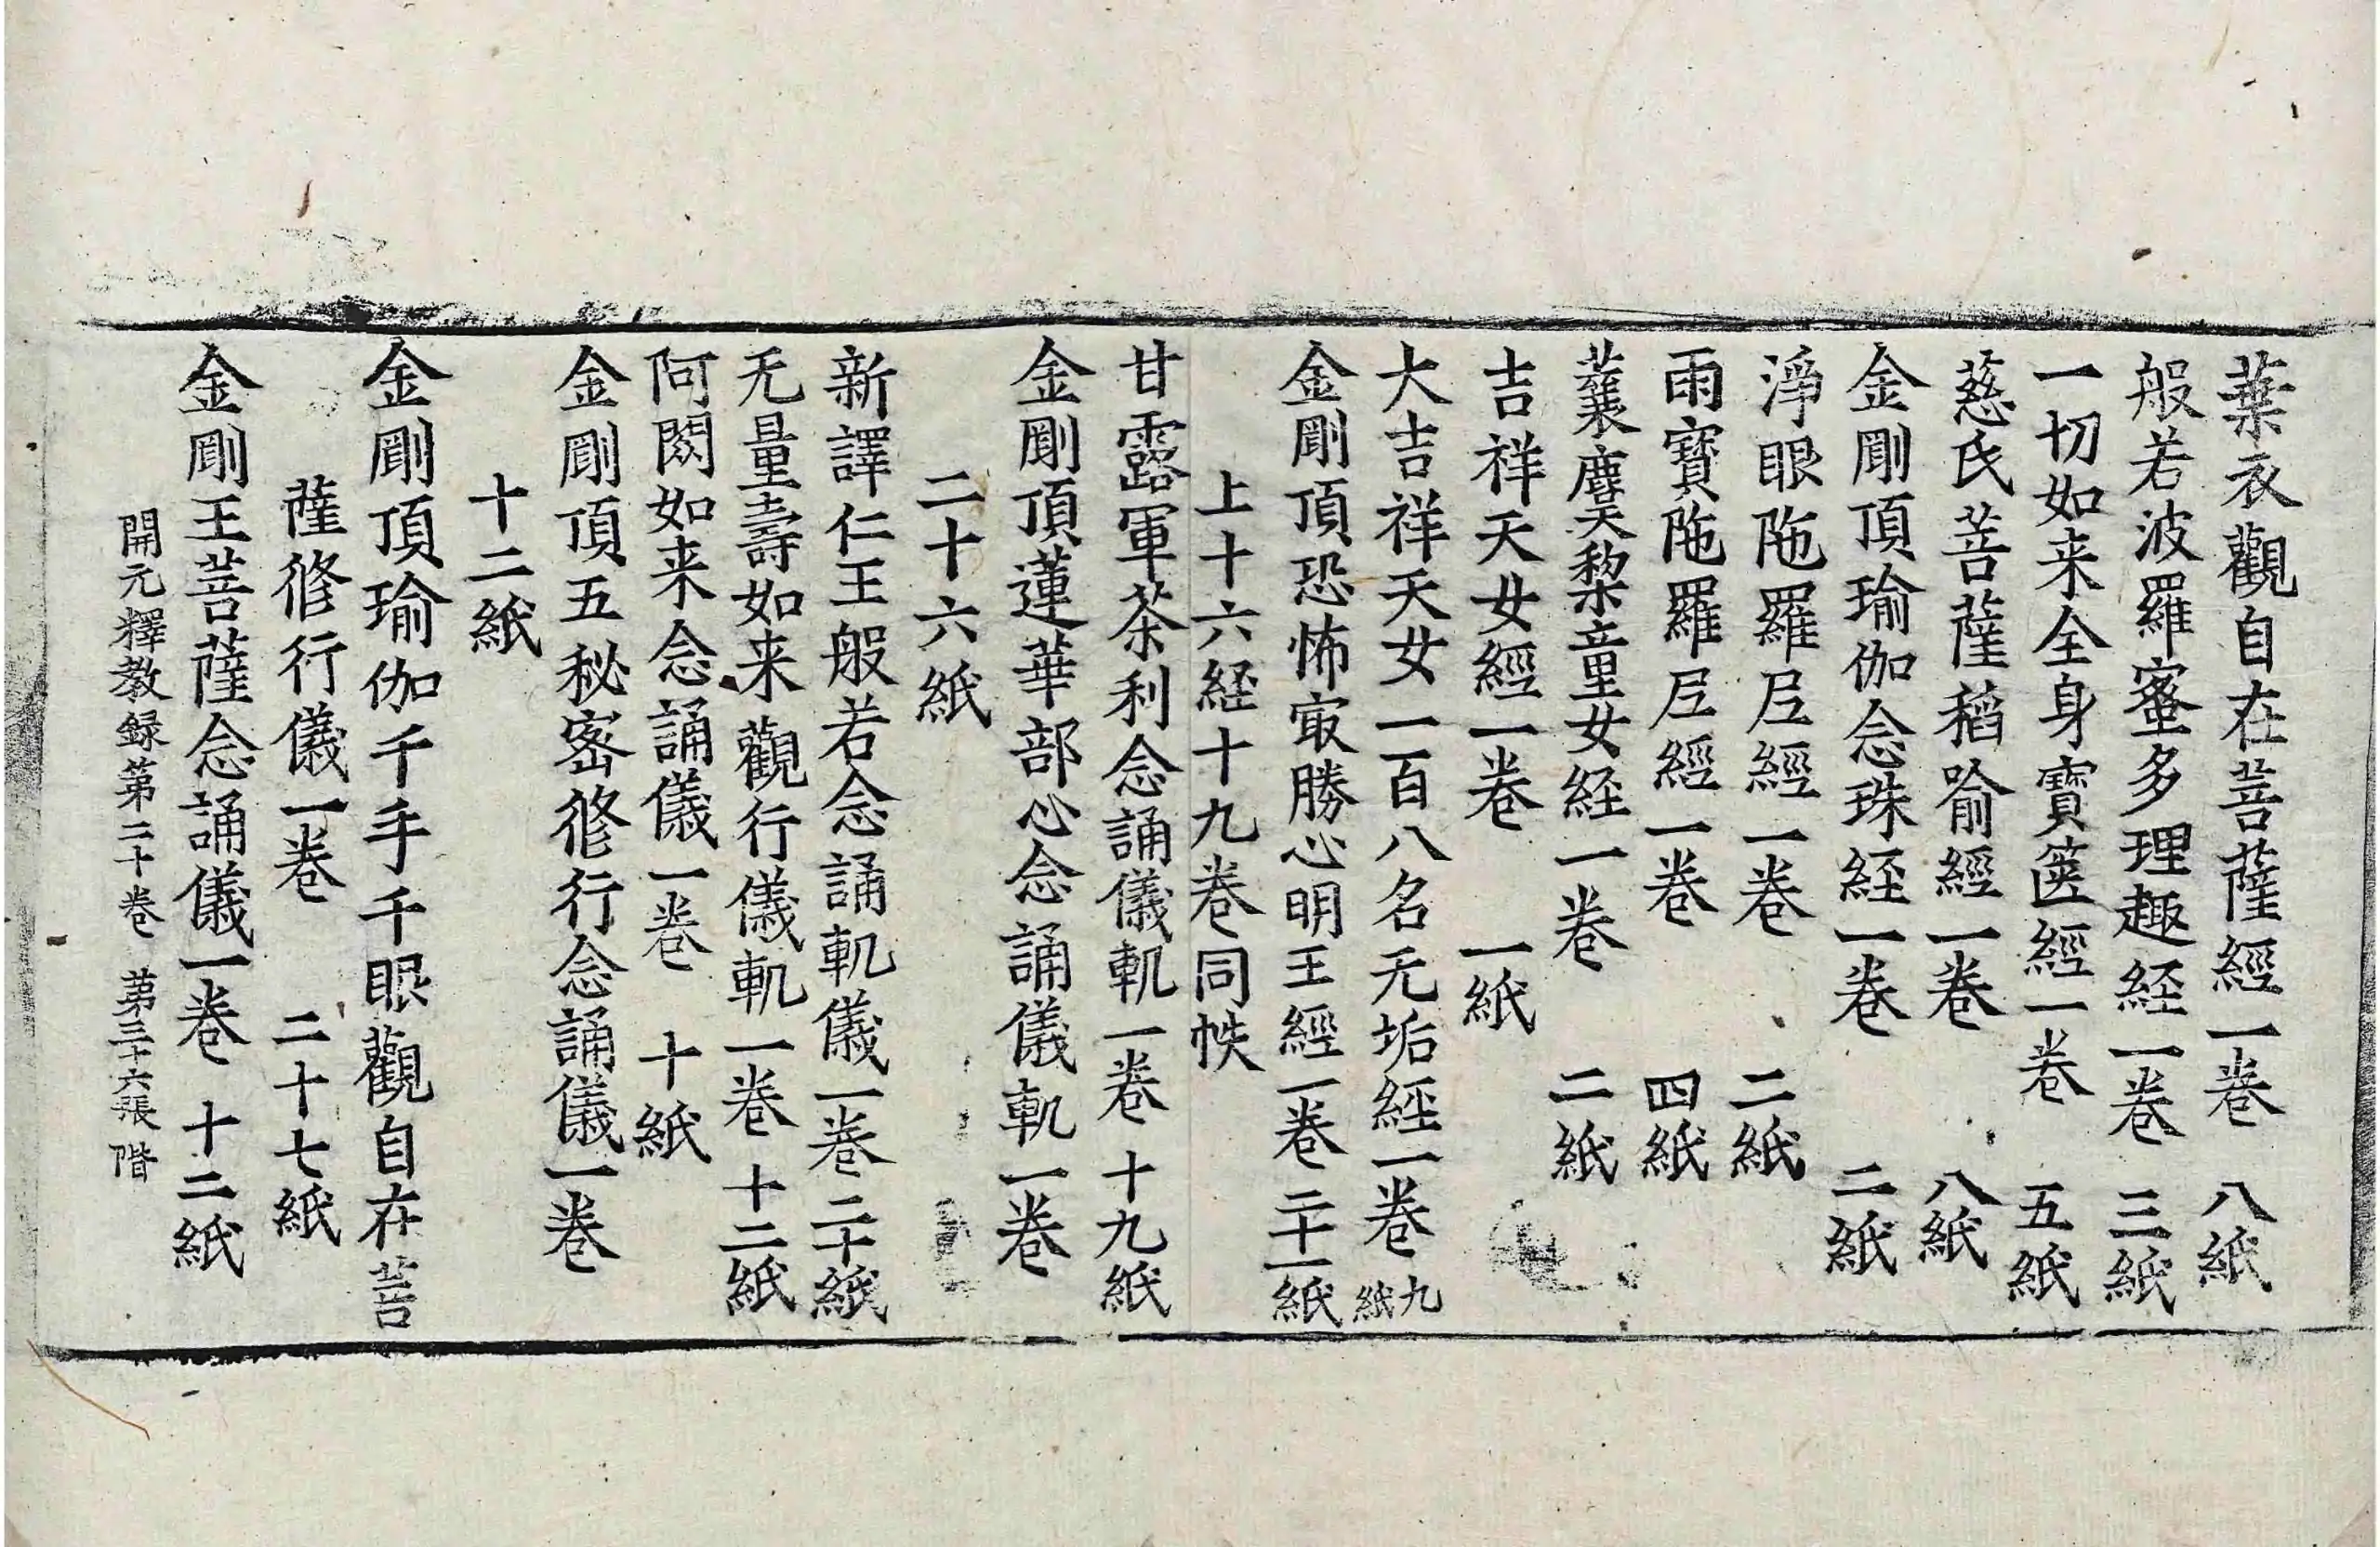 葉衣觀自在菩薩經一卷 八紙
般若波羅蜜多理趣経一卷 三紙
一切如来全身寶篋經一卷 五紙
慈氏菩薩稻喻經一卷 八紙
金剛頂瑜伽念珠経一卷 二紙
淨眼陁羅𡰱經一卷 二紙
雨寶陁羅𡰱經一卷 四紙
蘘麌黎童女経一卷 二紙
吉祥天女經一卷 一紙
大吉祥天女一百八名无垢經一卷 九紙
金剛頂恐怖㝡勝心明王經一卷 二十一紙
上十六経十九卷同帙
甘露軍茶利念誦儀軌一卷 十九紙
金剛頂蓮華部心念誦儀軌一卷
二十六紙
新譯仁王般若念誦軌儀一卷 二十紙
无量壽如来觀行儀軌一卷 十二紙
阿閦如来念誦儀一卷 十紙
金剛頂五秘宻修行念誦儀一卷
十二紙
金剛頂瑜伽千手千眼觀自在菩
薩修行儀一卷 二十七紙
金剛王菩薩念誦儀一卷 十二紙
開元釋教録第二十卷 第三十六張 階